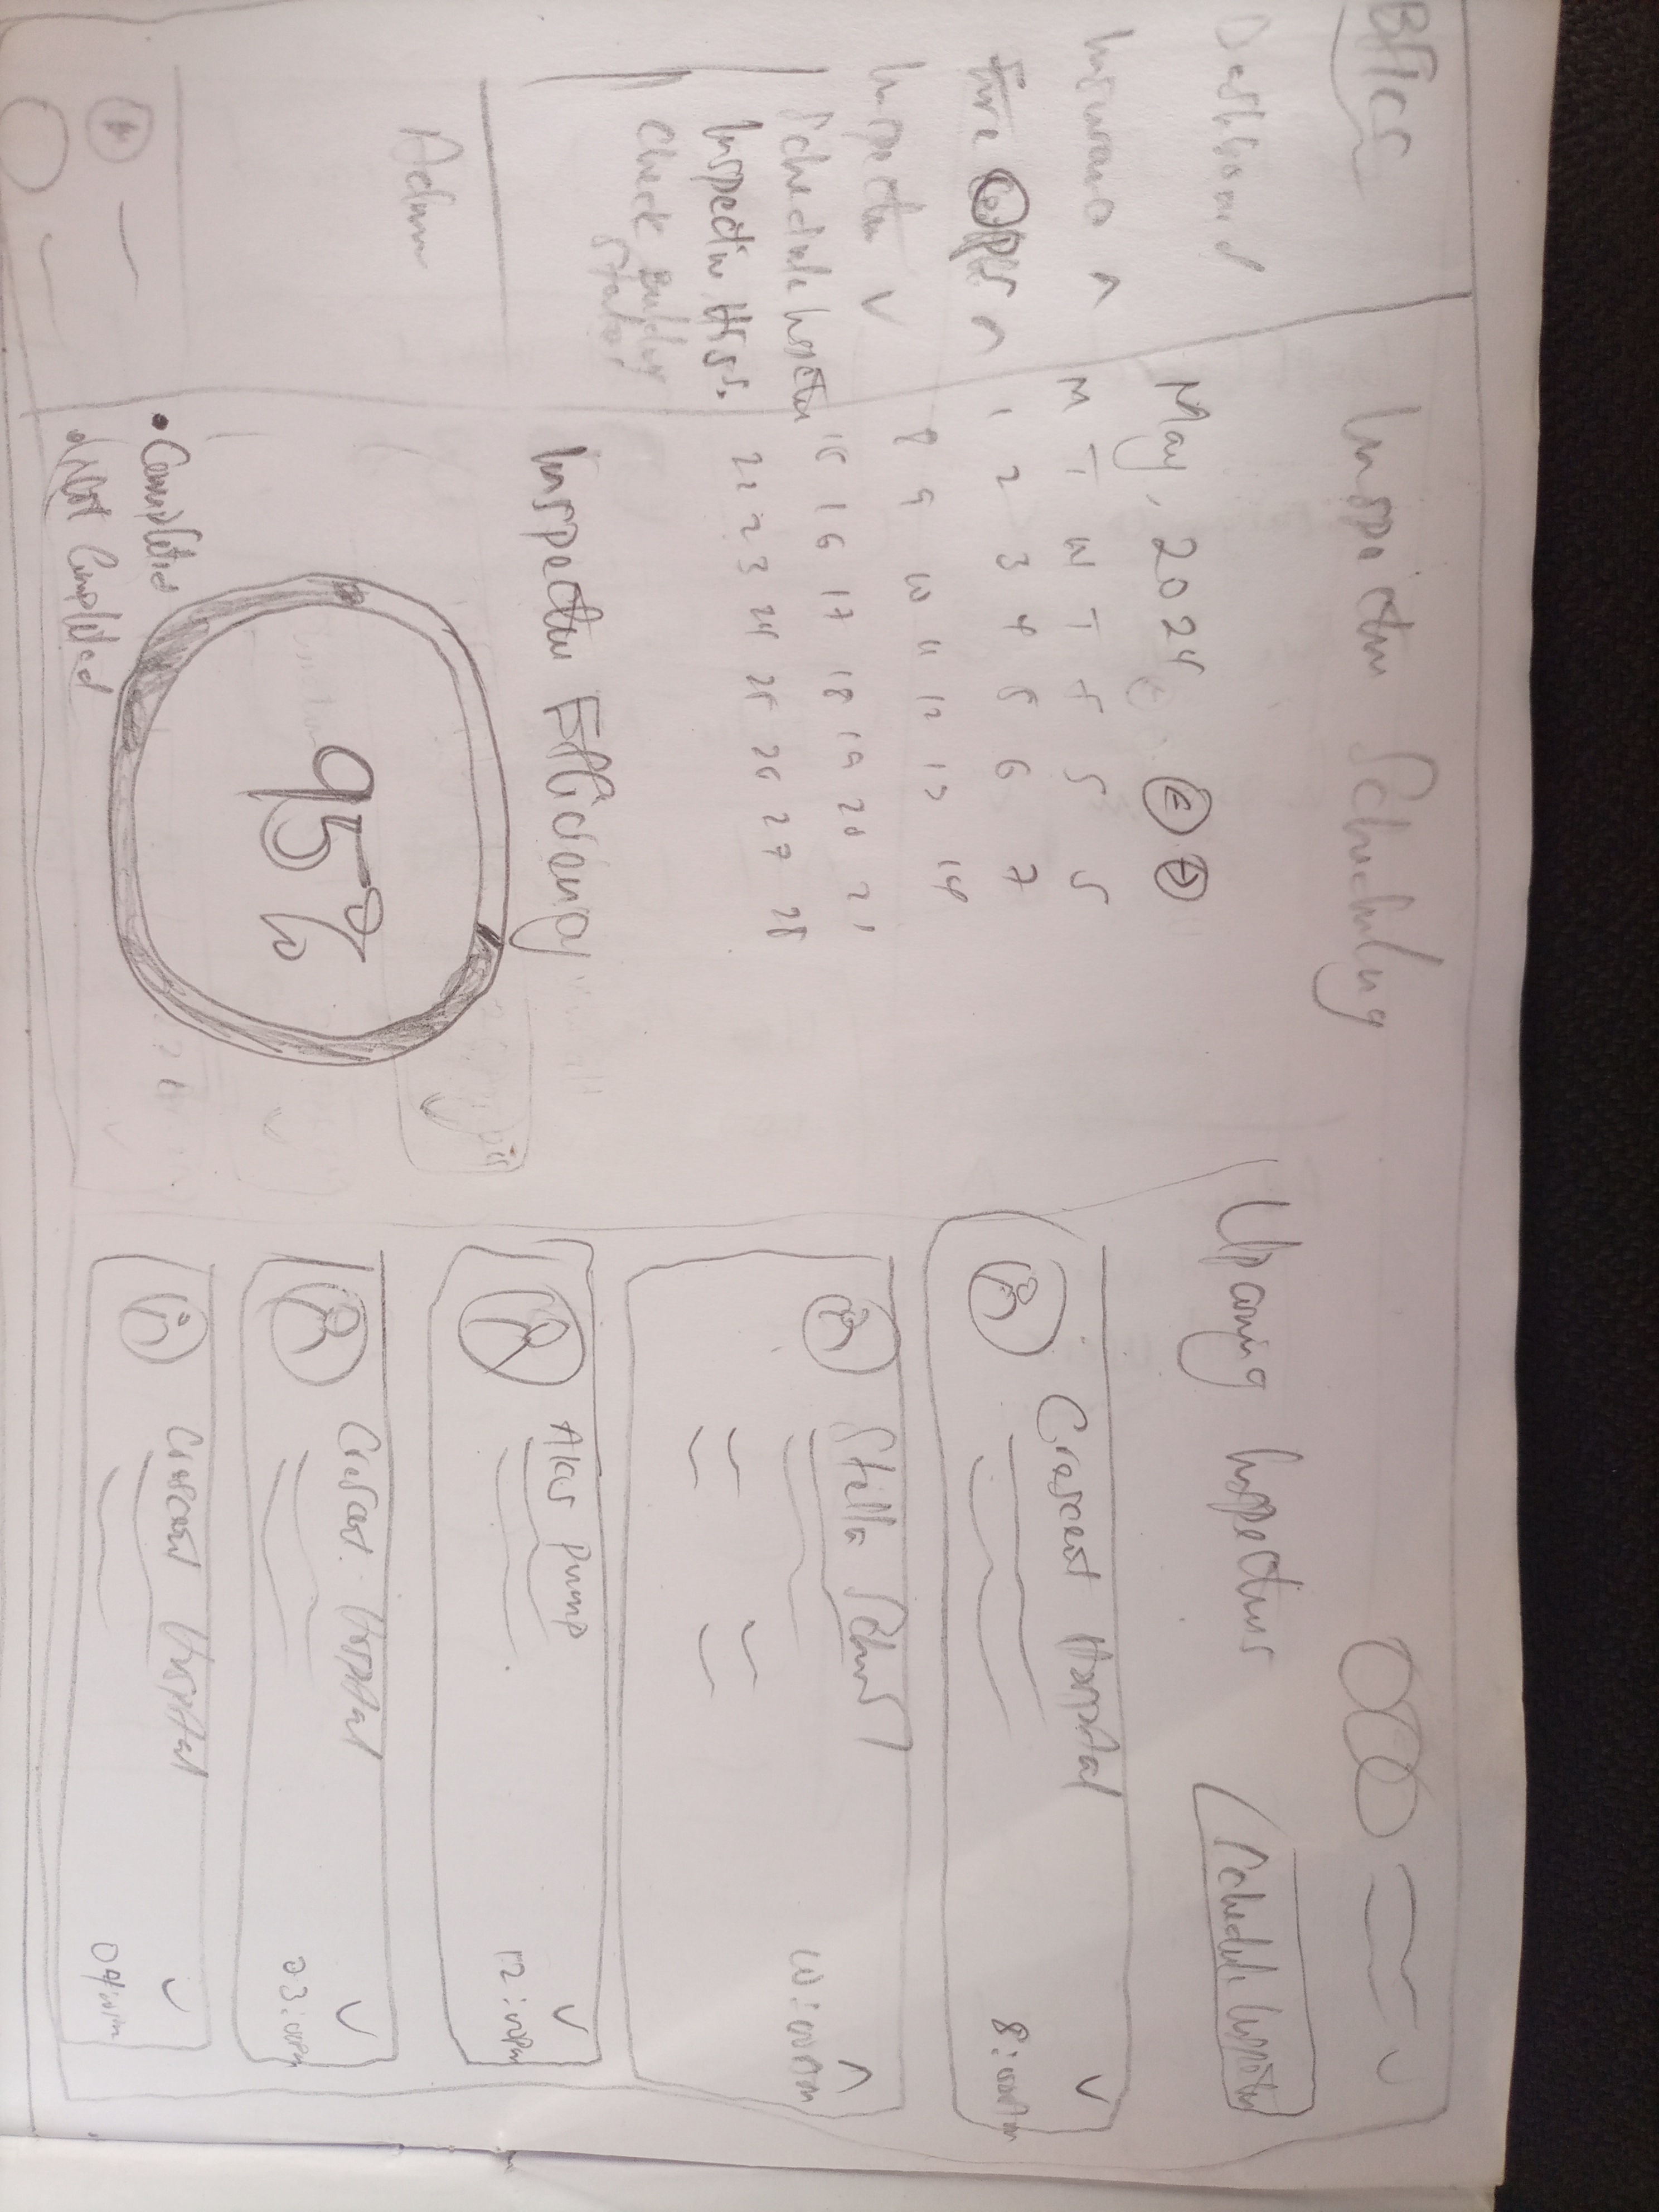 Dashboard
Insurance ^
Fire ^
Inspection v
Schedule
Inspection
Check
Admin
Inspection Scheduling
May, 2024
M T W T F S S
1 2 3 4 5 6 7
8 9 10 11 12 13 14
15 16 17 18 19 20 21
22 23 24 25 26 27 28
Inspection
95%
• Completed
• Not Completed
Upcoming Inspections
Schedule Inspection
Crescent Hospital
8:00Am
Stella School
10:00Am
Pump
12:00pm
Crescent Hospital
03:00pm
Crescent Hospital